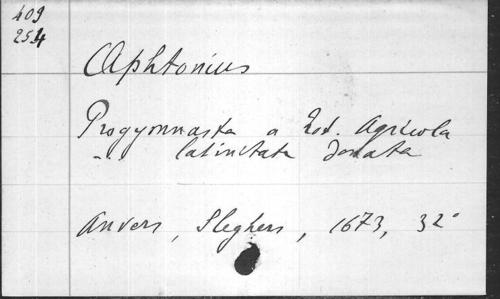 409
254
Aphtonius
Progymnasta a Rod. Agricola
... latinitata donata
Anvers, Sleghers, 1673, 32°